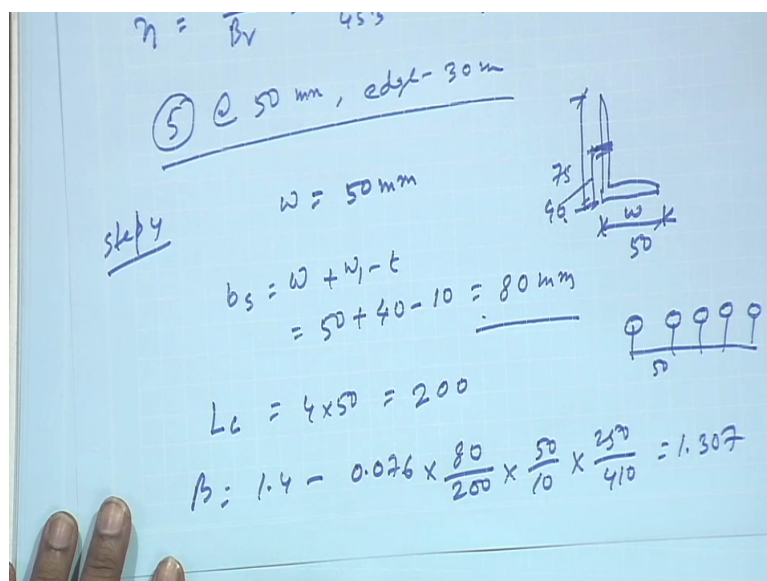 η = — / Bv = 45.3
⑤ @ 50 mm, edge - 30 m
step 4
w = 50 mm
75
40
w
50
bs = w + w1 - t
= 50 + 40 - 10 = 80 mm
50
Lc = 4 x 50 = 200
β = 1.4 - 0.076 x 80/200 x 50/10 x 250/410 = 1.307